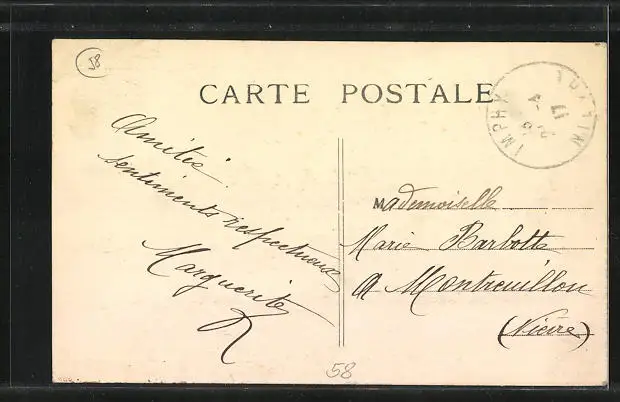 58
CARTE POSTALE
IMPHY
Amitié
sentiments respectueux
Marguerite
Mademoiselle
Marie Barbotte
A Montreuillon
(Nièvre)
58